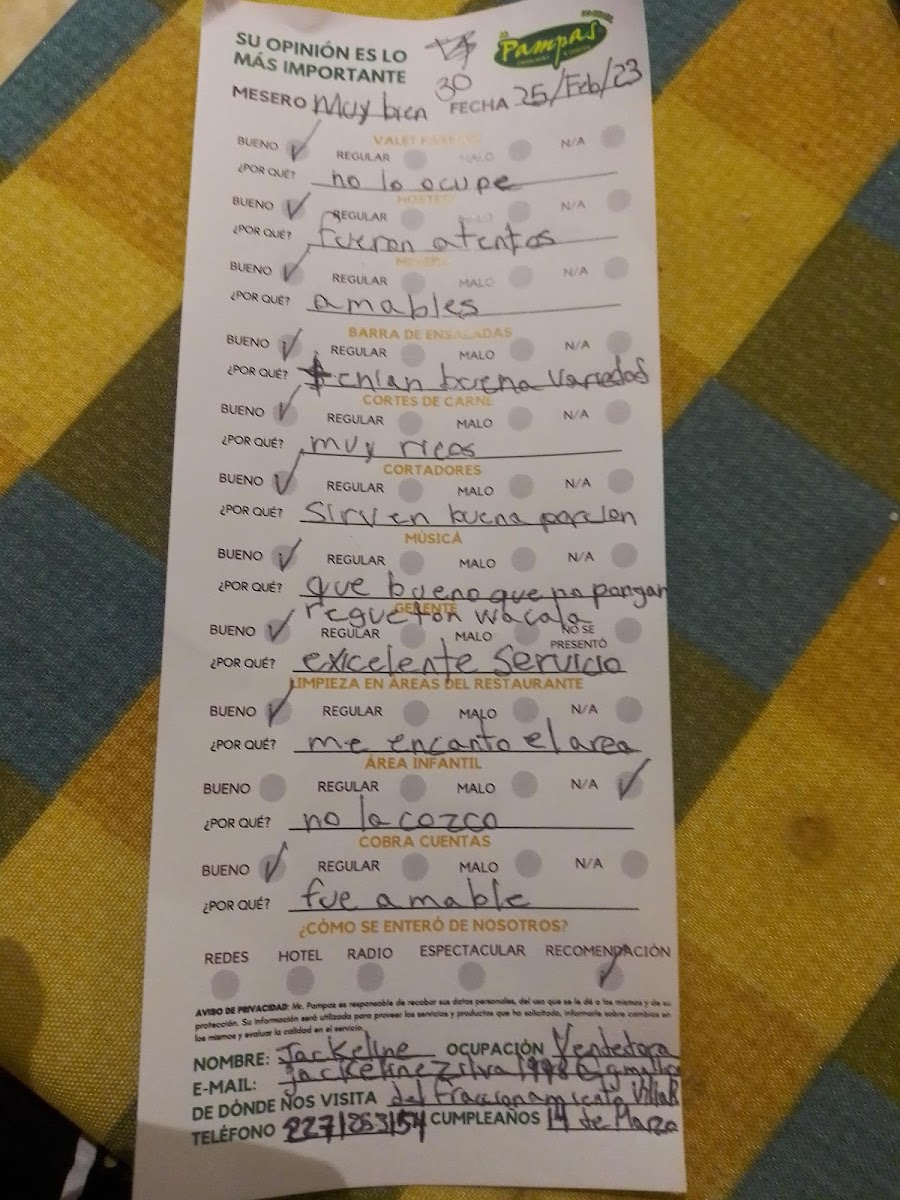 SU OPINIÓN ES LO
MÁS IMPORTANTE
Pampas
30
MESERO Muy bien FECHA 25/Feb/23
VALET
BUENO REGULAR MALO N/A
¿POR QUÉ? no lo ocupe
BUENO REGULAR N/A
¿POR QUÉ? fueron atentos
BUENO REGULAR MALO N/A
¿POR QUÉ? amables
BARRA DE ENSALADAS
BUENO REGULAR MALO N/A
¿POR QUÉ? tenian buena variedas
CORTES DE CARNE
BUENO REGULAR MALO N/A
¿POR QUÉ? muy ricos
CORTADORES
BUENO REGULAR MALO N/A
¿POR QUÉ? sirven buena porcion
MÚSICA
BUENO REGULAR MALO N/A
¿POR QUÉ? que bueno que no pongan
regueton wacala
GERENTE
BUENO REGULAR MALO NO SE PRESENTÓ
¿POR QUÉ? exicelente servicio
LIMPIEZA EN ÁREAS DEL RESTAURANTE
BUENO REGULAR MALO N/A
¿POR QUÉ? me encanto el area
ÁREA INFANTIL
BUENO REGULAR MALO N/A
¿POR QUÉ? no la cozco
COBRA CUENTAS
BUENO REGULAR MALO N/A
¿POR QUÉ? fue amable
¿CÓMO SE ENTERÓ DE NOSOTROS?
REDES HOTEL RADIO ESPECTACULAR RECOMENDACIÓN
AVISO DE PRIVACIDAD: Mr. Pampas es responsable de recabar sus datos personales, del uso que se le dé a los mismos y de su
protección. Su información será utilizada para proveer los servicios y productos que ha solicitado, informarle sobre cambios en
los mismos y evaluar la calidad en el servicio.
NOMBRE: Jackeline OCUPACIÓN Vendedora
E-MAIL: jackelinezsilva1998@gmail.c
DE DÓNDE NOS VISITA del Fraccionamiento VillaR
TELÉFONO 2271263154 CUMPLEAÑOS 14 de Marzo